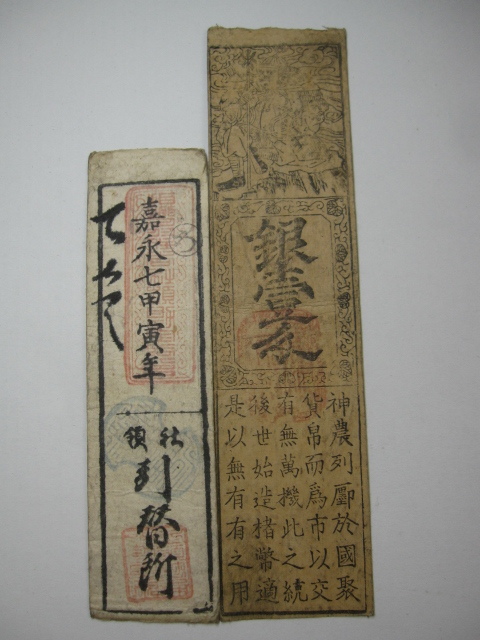 銀壹匁
神農列鄽於國聚
貨帛而爲市以交
有無萬機此之統
後世始造楮幣適
是以無有有之用
嘉永七甲寅年
社領
引替所